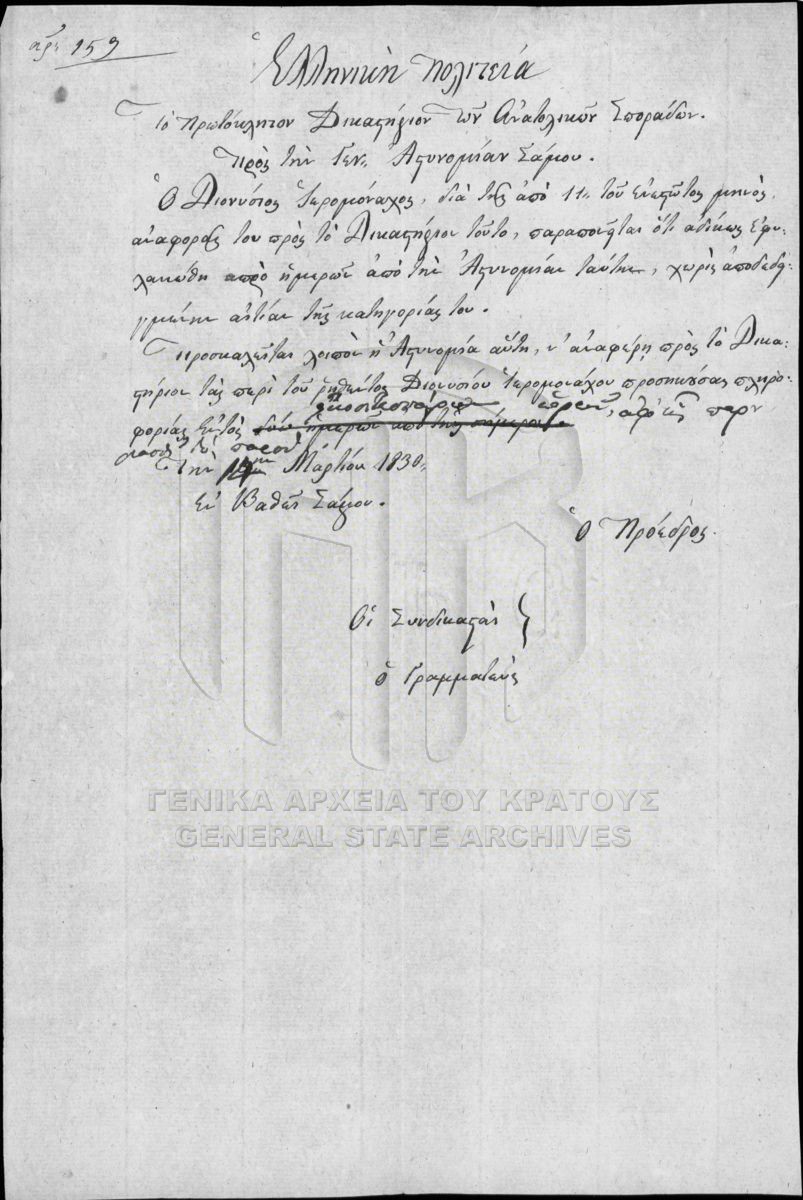 ἀρ: 159
Ἑλληνικὴ Πολιτεία
Τὸ Πρωτόκλητον Δικαστήριον τῶν Ἀνατολικῶν Σποράδων.
Πρὸς τὴν Γεν. Ἀστυνομίαν Σάμου.
Ὁ Διονύσιος Ἱερομόναχος, διὰ τῆς ἀπὸ 11 τοῦ ἐνεστῶτος μηνὸς
ἀναφορᾶς του πρὸς τὸ Δικαστήριον τοῦτο, παραπονῆται ὅτι ἀδίκως ἐφυ-
λακώθη πρὸ ἡμερῶν ἀπὸ τὴν Ἀστυνομίαν ταύτην, χωρὶς ἀποδεδει-
γμένην αἰτίαν τῆς κατηγορίας του.
Προσκαλεῖται λοιπὸν ἡ Ἀστυνομία αὕτη, ν' ἀναφέρῃ πρὸς τὸ Δικα-
στήριον τὰς περὶ τοῦ ῥηθέντος Διονυσίου Ἱερομονάχου προσηκούσας πληρο-
εἰκοσιτεσσάρων ὡρῶν, ἀφ' ἧς
φορίας ἐντὸς ἡμερῶν ἀπὸ τῆς σήμερον
τὸ παρόν
Τὴν Μαρτίου 1830.
Ἐν Βαθεῖ Σάμου.
Ὁ Πρόεδρος.
Οἱ Συνδικασταὶ }
ὁ Γραμματεὺς
ΓΕΝΙΚΑ ΑΡΧΕΙΑ ΤΟΥ ΚΡΑΤΟΥΣ
GENERAL STATE ARCHIVES